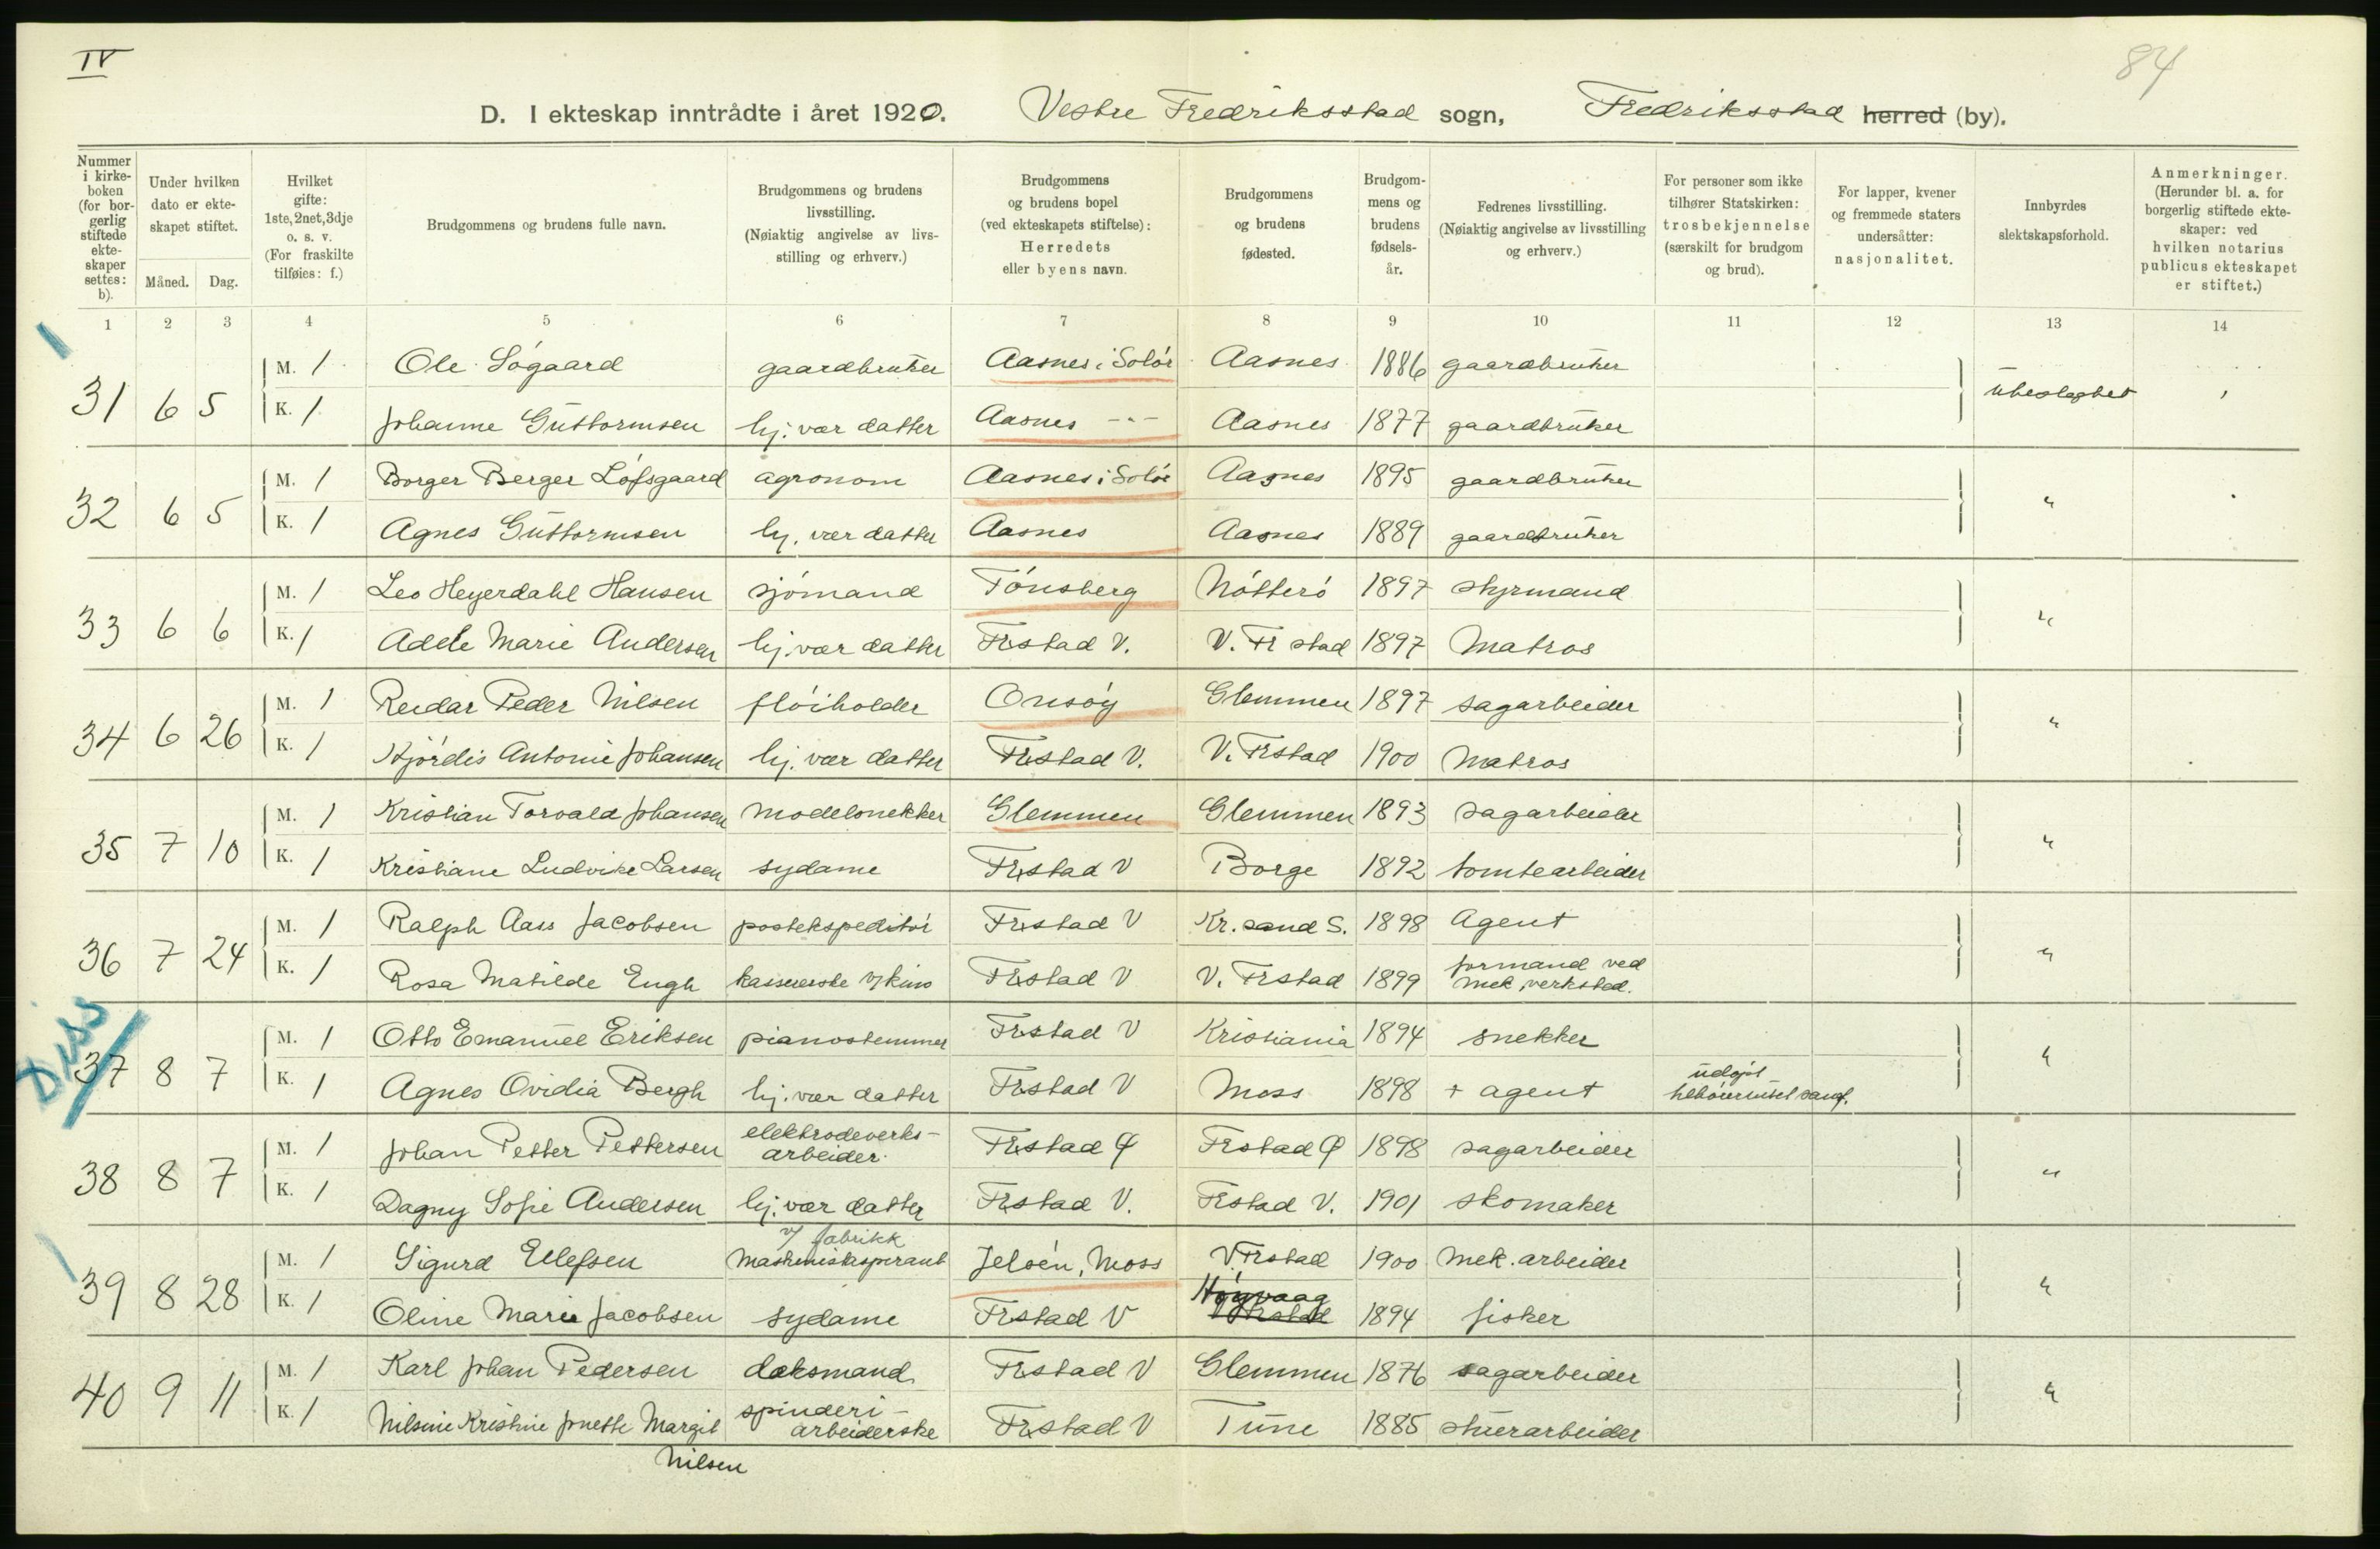 IV
84
D. I ekteskap inntrådte i året 1920. Vestre Fredriksstad sogn, Fredriksstad herred (by).
Nummer i kirke-boken (for bor-gerlig stiftede ekte-skaper settes: b).
Under hvilken dato er ekte-skapet stiftet.
Måned. Dag.
Hvilket gifte: 1ste, 2net, 3dje o. s. v. (For fraskilte tilføies: f.)
Brudgommens og brudens fulle navn.
Brudgommens og brudens livsstilling. (Nøiaktig angivelse av livs-stilling og erhverv.)
Brudgommens og brudens bopel (ved ekteskapets stiftelse): Herredets eller byens navn.
Brudgommens og brudens fødested.
Brudgom-mens og brudens fødsels-år.
Fedrenes livsstilling. (Nøiaktig angivelse av livsstilling og erhverv.)
For personer som ikke tilhører Statskirken: trosbekjennelse (særskilt for brudgom og brud).
For lapper, kvener og fremmede staters undersåtter: nasjonalitet.
Innbyrdes slektskapsforhold.
Anmerkninger. (Herunder bl. a. for borgerlig stiftede ekte-skaper: ved hvilken notarius publicus ekteskapet er stiftet.)
1 2 3 4 5 6 7 8 9 10 11 12 13 14
31 6 5 M. 1 Ole Søgaard gaardbruker Aasnes i Solør Aasnes 1886 gaardbruker ubeslegtet
K. 1 Johanne Guttormsen hj. vær datter Aasnes -"- Aasnes 1877 gaardbruker
32 6 5 M. 1 Borger Berger Løfsgaard agronom Aasnes i Solør Aasnes 1895 gaardbruker "
K. 1 Agnes Guttormsen hj. vær datter Aasnes Aasnes 1889 gaardbruker
33 6 6 M. 1 Leo Heyerdahl Hansen sjømand Tønsberg Nøtterø 1897 styrmand "
K. 1 Adele Marie Andersen hj. vær datter Frstad V. V. Fr stad 1897 Matros
34 6 26 M. 1 Reidar Peder Nilsen fløiholder Onsøy Glemmen 1897 sagarbeider "
K. 1 Hjørdis Antonie Johansen hj. vær datter Frstad V. V. Frstad 1900 Matros
35 7 10 M. 1 Kristian Torvald Johansen Modelsnekker Glemmen Glemmen 1893 sagarbeider "
K. 1 Kristiane Ludvike Larsen sydame Frstad V Borge 1892 tomtearbeider
36 7 24 M. 1 Ralph Aass Jacobsen postekspeditør Frstad V Kr. sand S. 1898 Agent "
K. 1 Rosa Matilde Engh kassererske v/kino Frstad V V. Frstad 1899 formand ved mek. verksted.
Diss
37 8 7 M. 1 Otto Emanuel Eriksen pianostemmer Frstad V Kristiania 1894 snekker "
K. 1 Agnes Ovidia Bergh hj. vær datter Frstad V Moss 1898 + agent
38 8 7 M. 1 Johan Petter Pettersen elektrodeverks-arbeider. Frstad Ø Frstad Ø 1898 sagarbeider "
K. 1 Dagny Sofie Andersen hj. vær datter Frstad V. Frstad V. 1901 skomaker
39 8 28 M. 1 Sigurd Ellefsen Maskinistaspirant v/ fabrikk Jeløen, Moss V. Frstad 1900 Mek. arbeider "
K. 1 Oline Marie Jacobsen sydame Frstad V Høyvaag 1894 fisker
40 9 11 M. 1 Karl Johan Pedersen doksmand Frstad V Glemmen 1876 sagarbeider "
K. 1 Nilsine Kristine Jonette Margit Nilsen spinderi-arbeiderske Frstad V Tune 1885 stuerarbeider